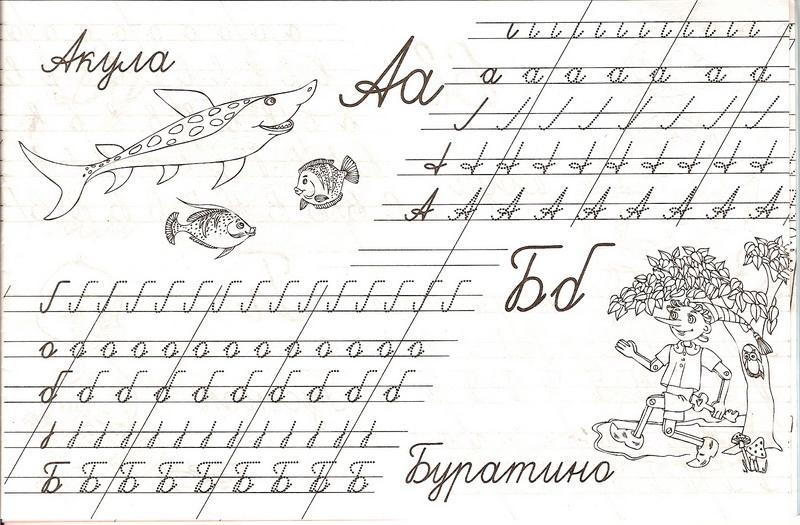 Акула
Аа
а а а а а а а
А А А А А А А А А
Бб
о о о о о о о о о о о о о
б б б б б б б б б б
Б Б Б Б Б Б Б Б Б
Буратино